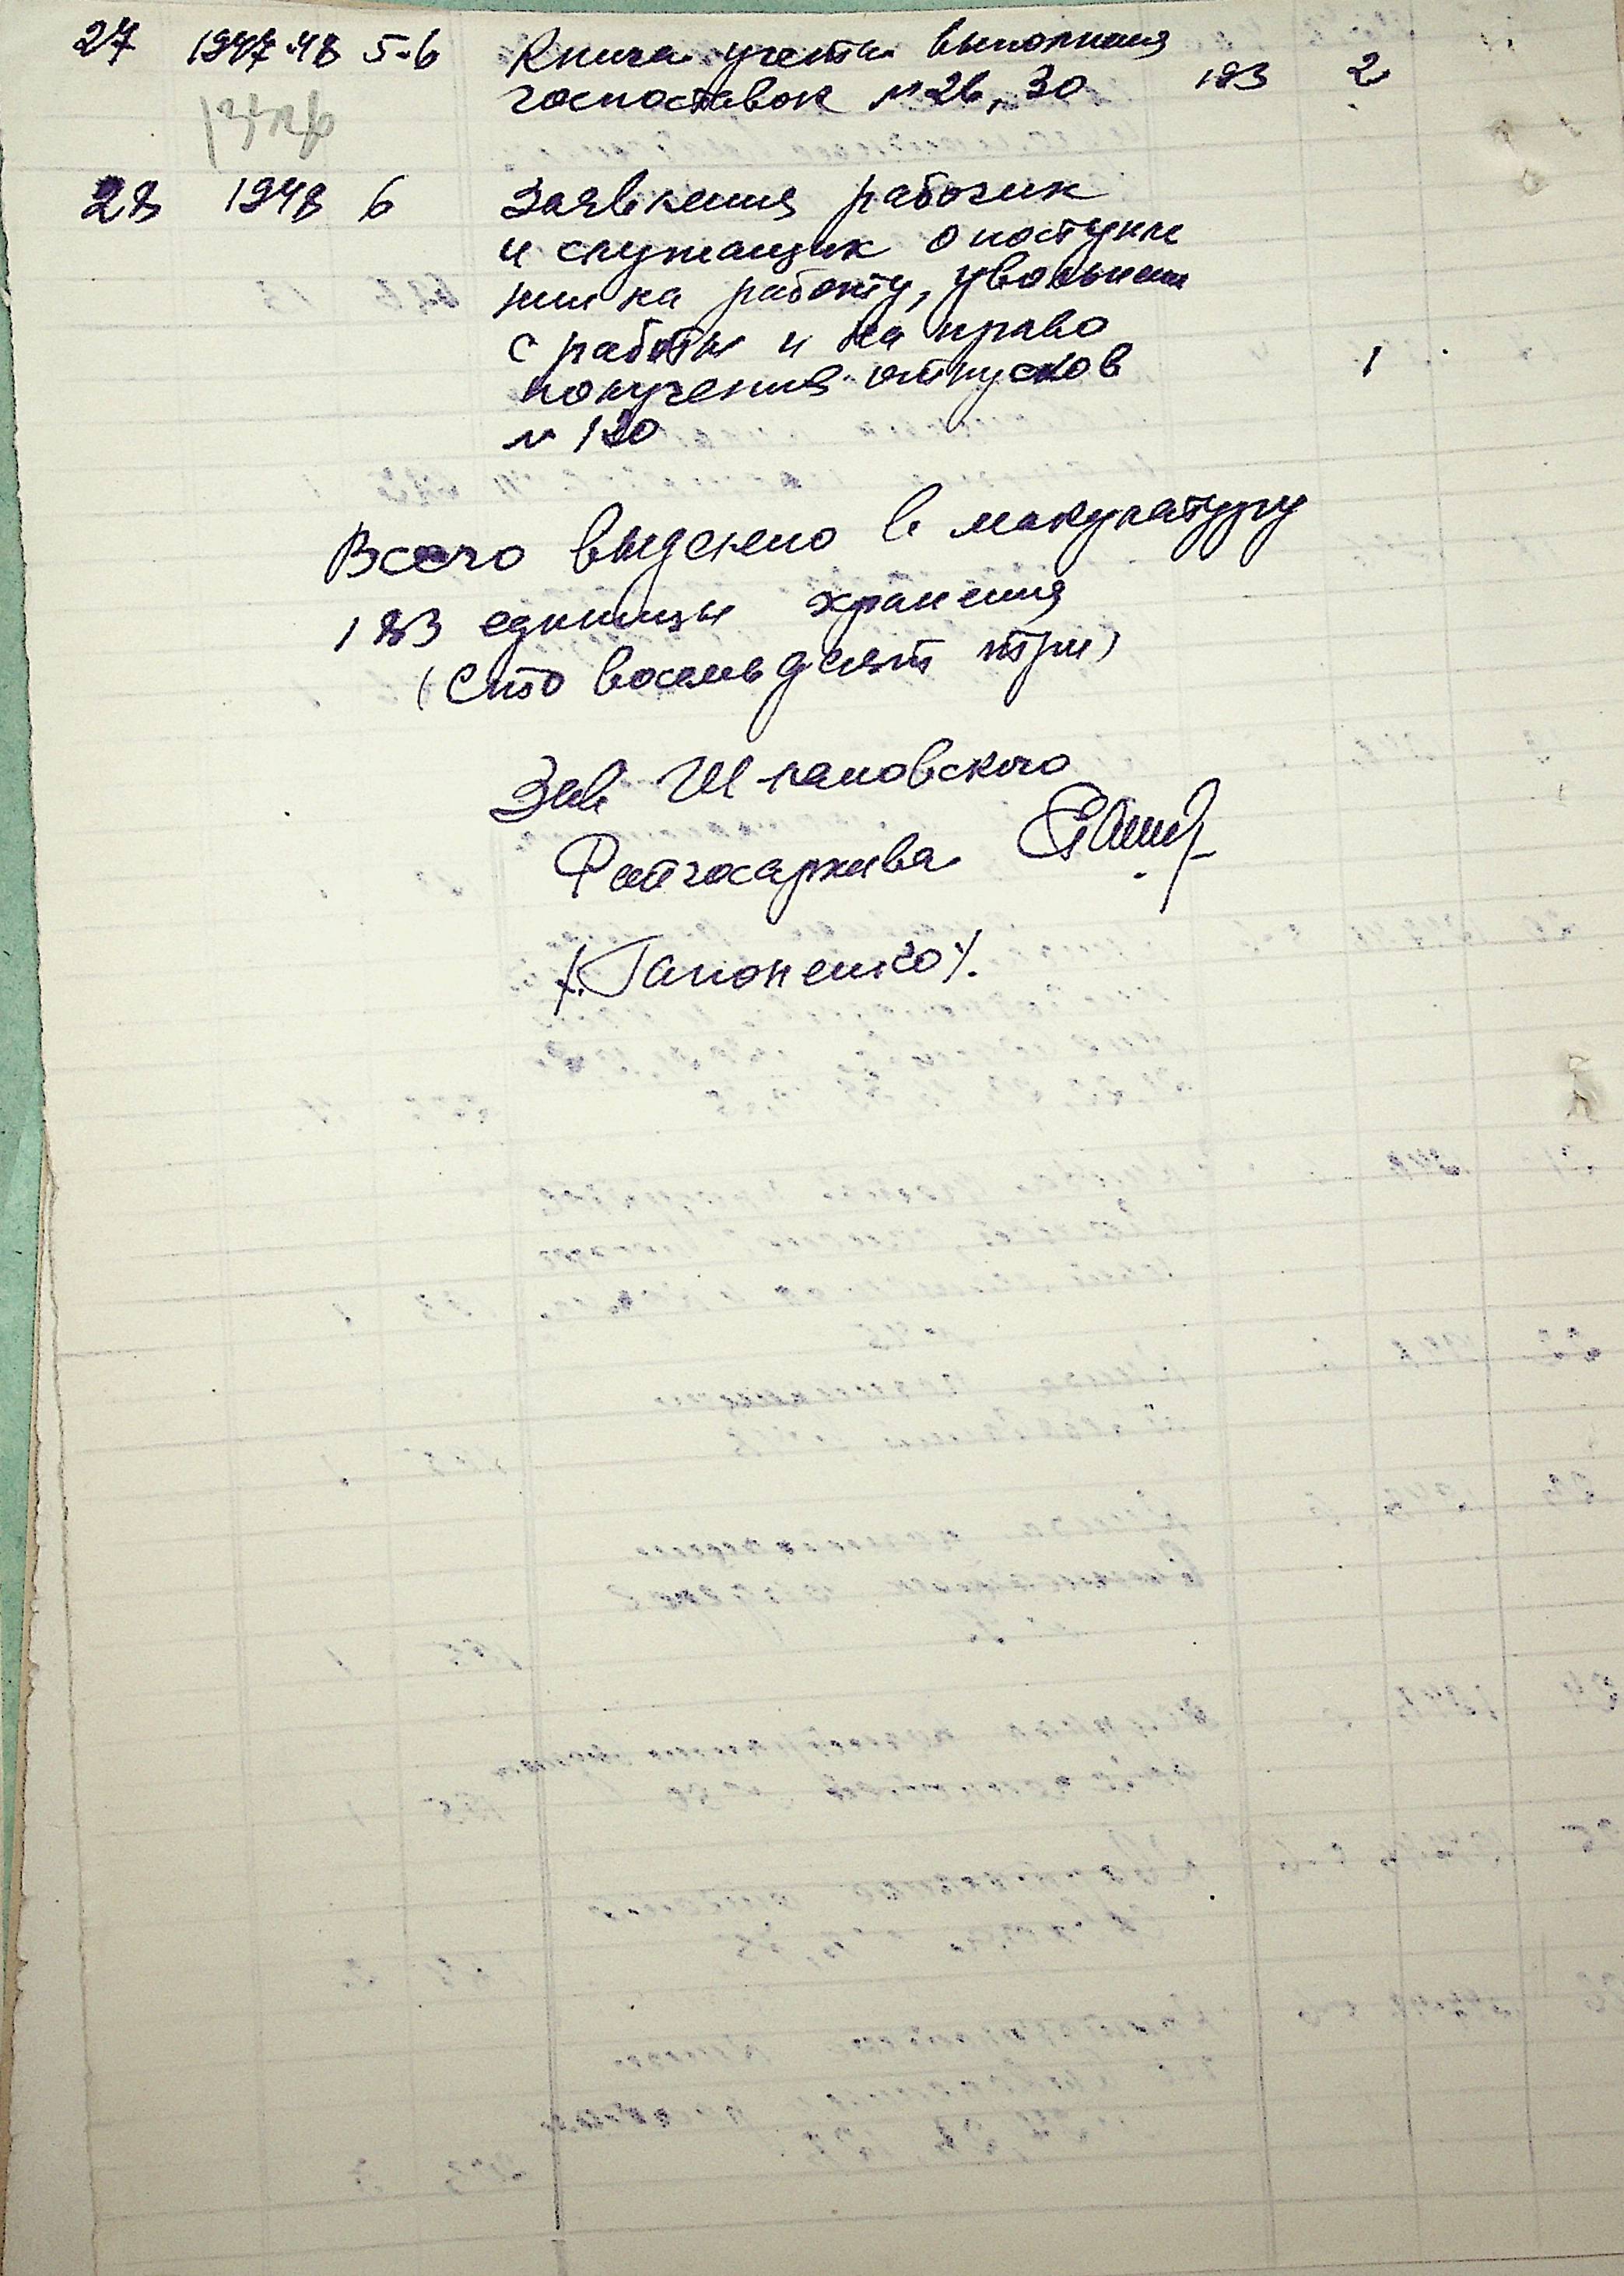 27 1947-48 5-6 Книга учета выполнения
госпоставок № 26, 30 193 2
28 1948 6 Заявления рабочих
и служащих о поступле
нии на работу, увольнении
с работы и на право
получения отпусков 1
№ 120
Всего выделено в макулатуру
183 единицы хранения
(Сто восемьдесят три)
Зав
Райгосархива
/Гапоненко/.